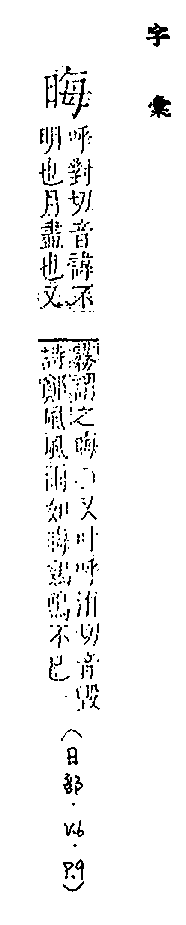 字彙
晦
呼對切音諱不
明也月盡也又
霧謂之晦○又叶呼洧切音毀
詩鄭風風雨如晦雞鳴不已
(日部.V.6.P.9)